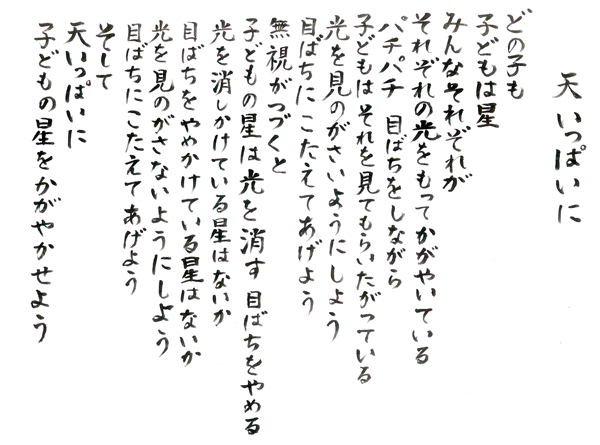 天いっぱいに
どの子も
子どもは星
みんなそれぞれが
それぞれの光をもってかがやいている
パチパチ 目ばちをしながら
子どもはそれを見てもらいたがっている
光を見のがさいようにしよう
目ばちにこたえてあげよう
無視がつづくと
子どもの星は光を消す 目ばちをやめる
光を消しかけている星はないか
目ばちをやめかけている星はないか
光を見のがさないようにしよう
目ばちにこたえてあげよう
そして
天いっぱいに
子どもの星をかがやかせよう